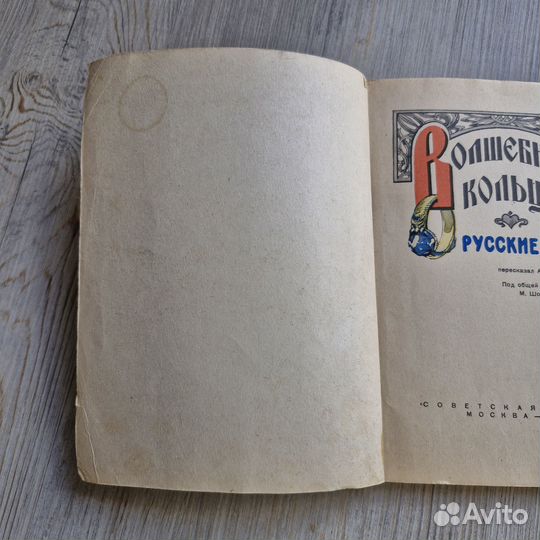 ВОЛШЕБН
КОЛЬЦ
РУССКИЕ
пересказал А
Под общей
М. Шо
«СОВЕТСКАЯ
МОСКВА—
Avito